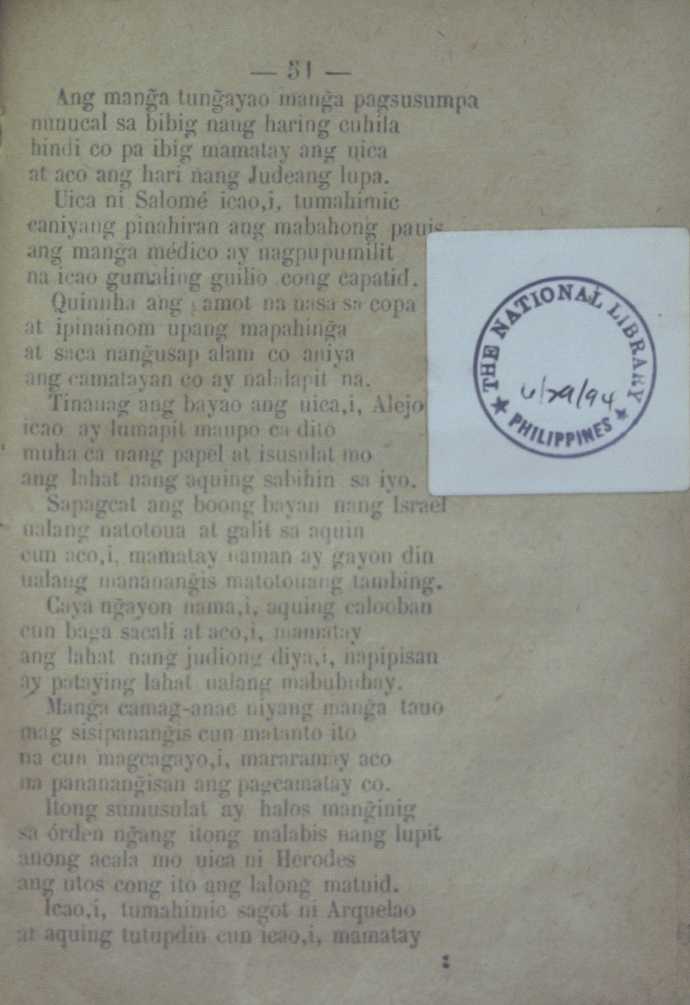 — 51 —
Ang mang̃a tung̃ayao mang̃a pagsusumpa
nunucal sa bibig nang haring cuhila
hindi co pa ibig mamatay ang uica
at aco ang hari nang Judeang lupa.
Uica ni Salomé icao,i, tumahimic
caniyang pinahiran ang mabahong pauis
ang mang̃a médico ay nagpupumilit
na icao gumaling guilio cong capatid.
Quinuha ang gamot na nasa sa copa
at ipinainom upang mapahing̃a
at saca nang̃usap alam co aniya
ang camatayan co ay nalalapit na.
Tinauag ang bayao ang uica,i, Alejo
icao ay lumapit maupo ca dito
muha ca nang papel at isusulat mo
ang lahat nang aquing sabihin sa iyo.
Sapagcat ang boong bayan nang Israel
ualang natotoua at galit sa aquin
cun aco,i, mamatay naman ay gayon din
ualang mananang̃is matotouang tambing.
Caya ng̃ayon nama,i, aquing calooban
cun baga sacali at aco,i, mamatay
ang lahat nang judiong diya,i, napipisan
ay pataying lahat ualang mabububay.
Mang̃a camag-anac niyang mang̃a tauo
mag sisipanang̃is cun matanto ito
na cun magcagayo,i, mararamay aco
na pananang̃isan ang pagcamatay co.
Itong sumusulat ay halos mang̃inig
sa órden ng̃ang itong malabis nang lupit
anong acala mo uica ni Herodes
ang utos cong ito ang lalong matuid.
Icao,i, tumahimic sagot ni Arquelao
at aquing tutupdin cun icao,i, mamatay
THE NATIONAL LIBRARY
PHILIPPINES